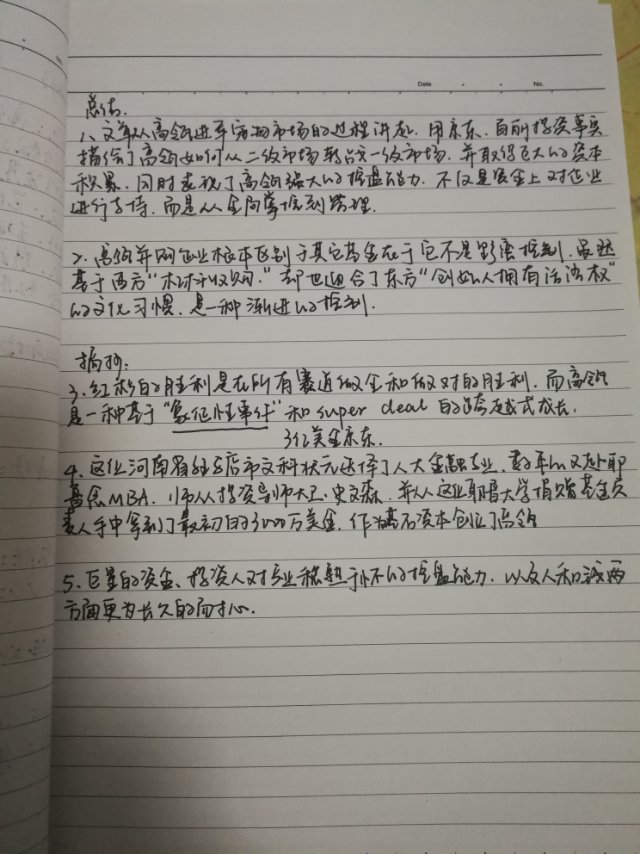 Date . . No.
总结.
1、文章从高瓴进军宠物市场的过程讲起,用京东、百丽投资事实
描绘了高瓴如何从二级市场转战一级市场,并取得巨大的资本
积累,同时表现了高瓴强大的控盘能力,不仅是资金上对企业
进行支持,而是从全局掌控到管理.
2、高瓴并购企业根本区别于其它基金在于它不是野蛮控制,虽然
基于西方“杠杆收购”却也迎合了东方“创始人拥有话语权”
的文化习惯,是一种渐进的控制.
摘抄:
3、红杉的胜利是在所有赛道做全和做对的胜利,而高瓴
是一种基于“象征性事件”和super deal的跨越式成长.
3亿美金京东.
4、这位河南省驻马店市文科状元选择了人大金融专业,数年以又赴耶
鲁念MBA,师从投资导师大卫·史文森,并从这位耶鲁大学捐赠基金负
责人手中拿到了最初的3000万美金,作为基石资本创立了高瓴
5、巨量的资金、投资人对专业稔熟于怀的控盘能力,以及人和钱两
方面更为长久的耐心.